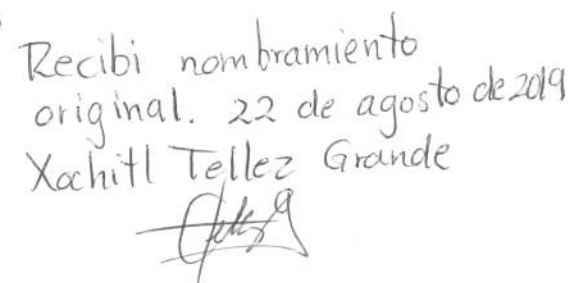 Recibi nombramiento
original. 22 de agosto de 2019
Xochitl Tellez Grande